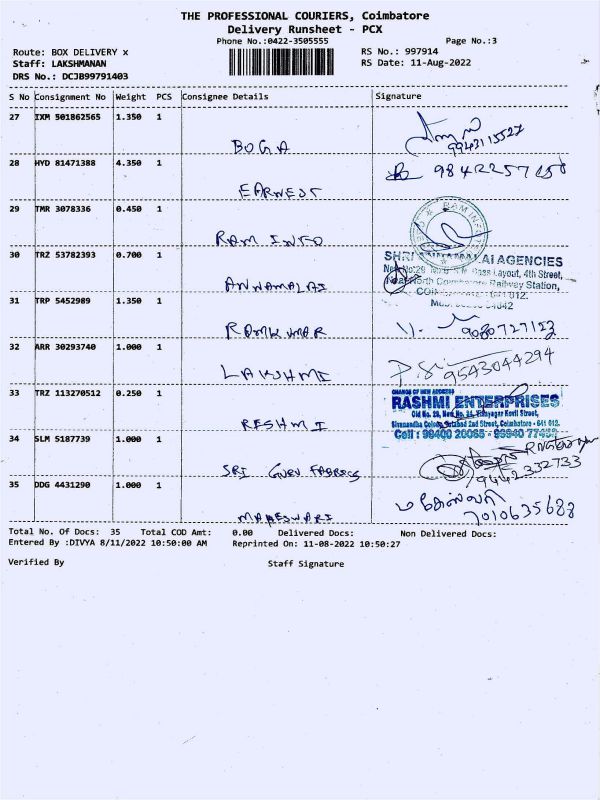 THE PROFESSIONAL COURIERS, Coimbatore
Delivery Runsheet - PCX
Phone No.:0422-3505555
Page No.:3
Route: BOX DELIVERY x
RS No.: 997914
Staff: LAKSHMANAN
RS Date: 11-Aug-2022
DRS No.: DCJB99791403
S No Consignment No Weight PCS Consignee Details Signature
27 IXM 501862565 1.350 1
BOGA 9943115527
28 HYD 81471388 4.350 1
EARNEST
29 TMR 3078336 0.450 1
RAM INFO
30 TRZ 53782393 0.700 1
ANNAMALAI
SHRI ANNAMALAI AGENCIES
Layout, 4th Street,
Railway Station,
31 TRP 5452989 1.350 1
RAMKUMAR
32 ARR 30293740 1.000 1
LAKSHMI 9543044294
33 TRZ 113270512 0.250 1
RESHMI
CHANGE OF NEW ADDRESS
RASHMI ENTERPRISES
Street,
Street, Coimbatore - 641 012.
34 SLM 5187739 1.000 1
SRI GURU FABRICS 9442332733
35 DDG 4431290 1.000 1
MAHESWARI மகேஸ்வரி
7010635688
Total No. Of Docs: 35 Total COD Amt: 0.00 Delivered Docs: Non Delivered Docs:
Entered By :DIVYA 8/11/2022 10:50:00 AM Reprinted On: 11-08-2022 10:50:27
Verified By Staff Signature